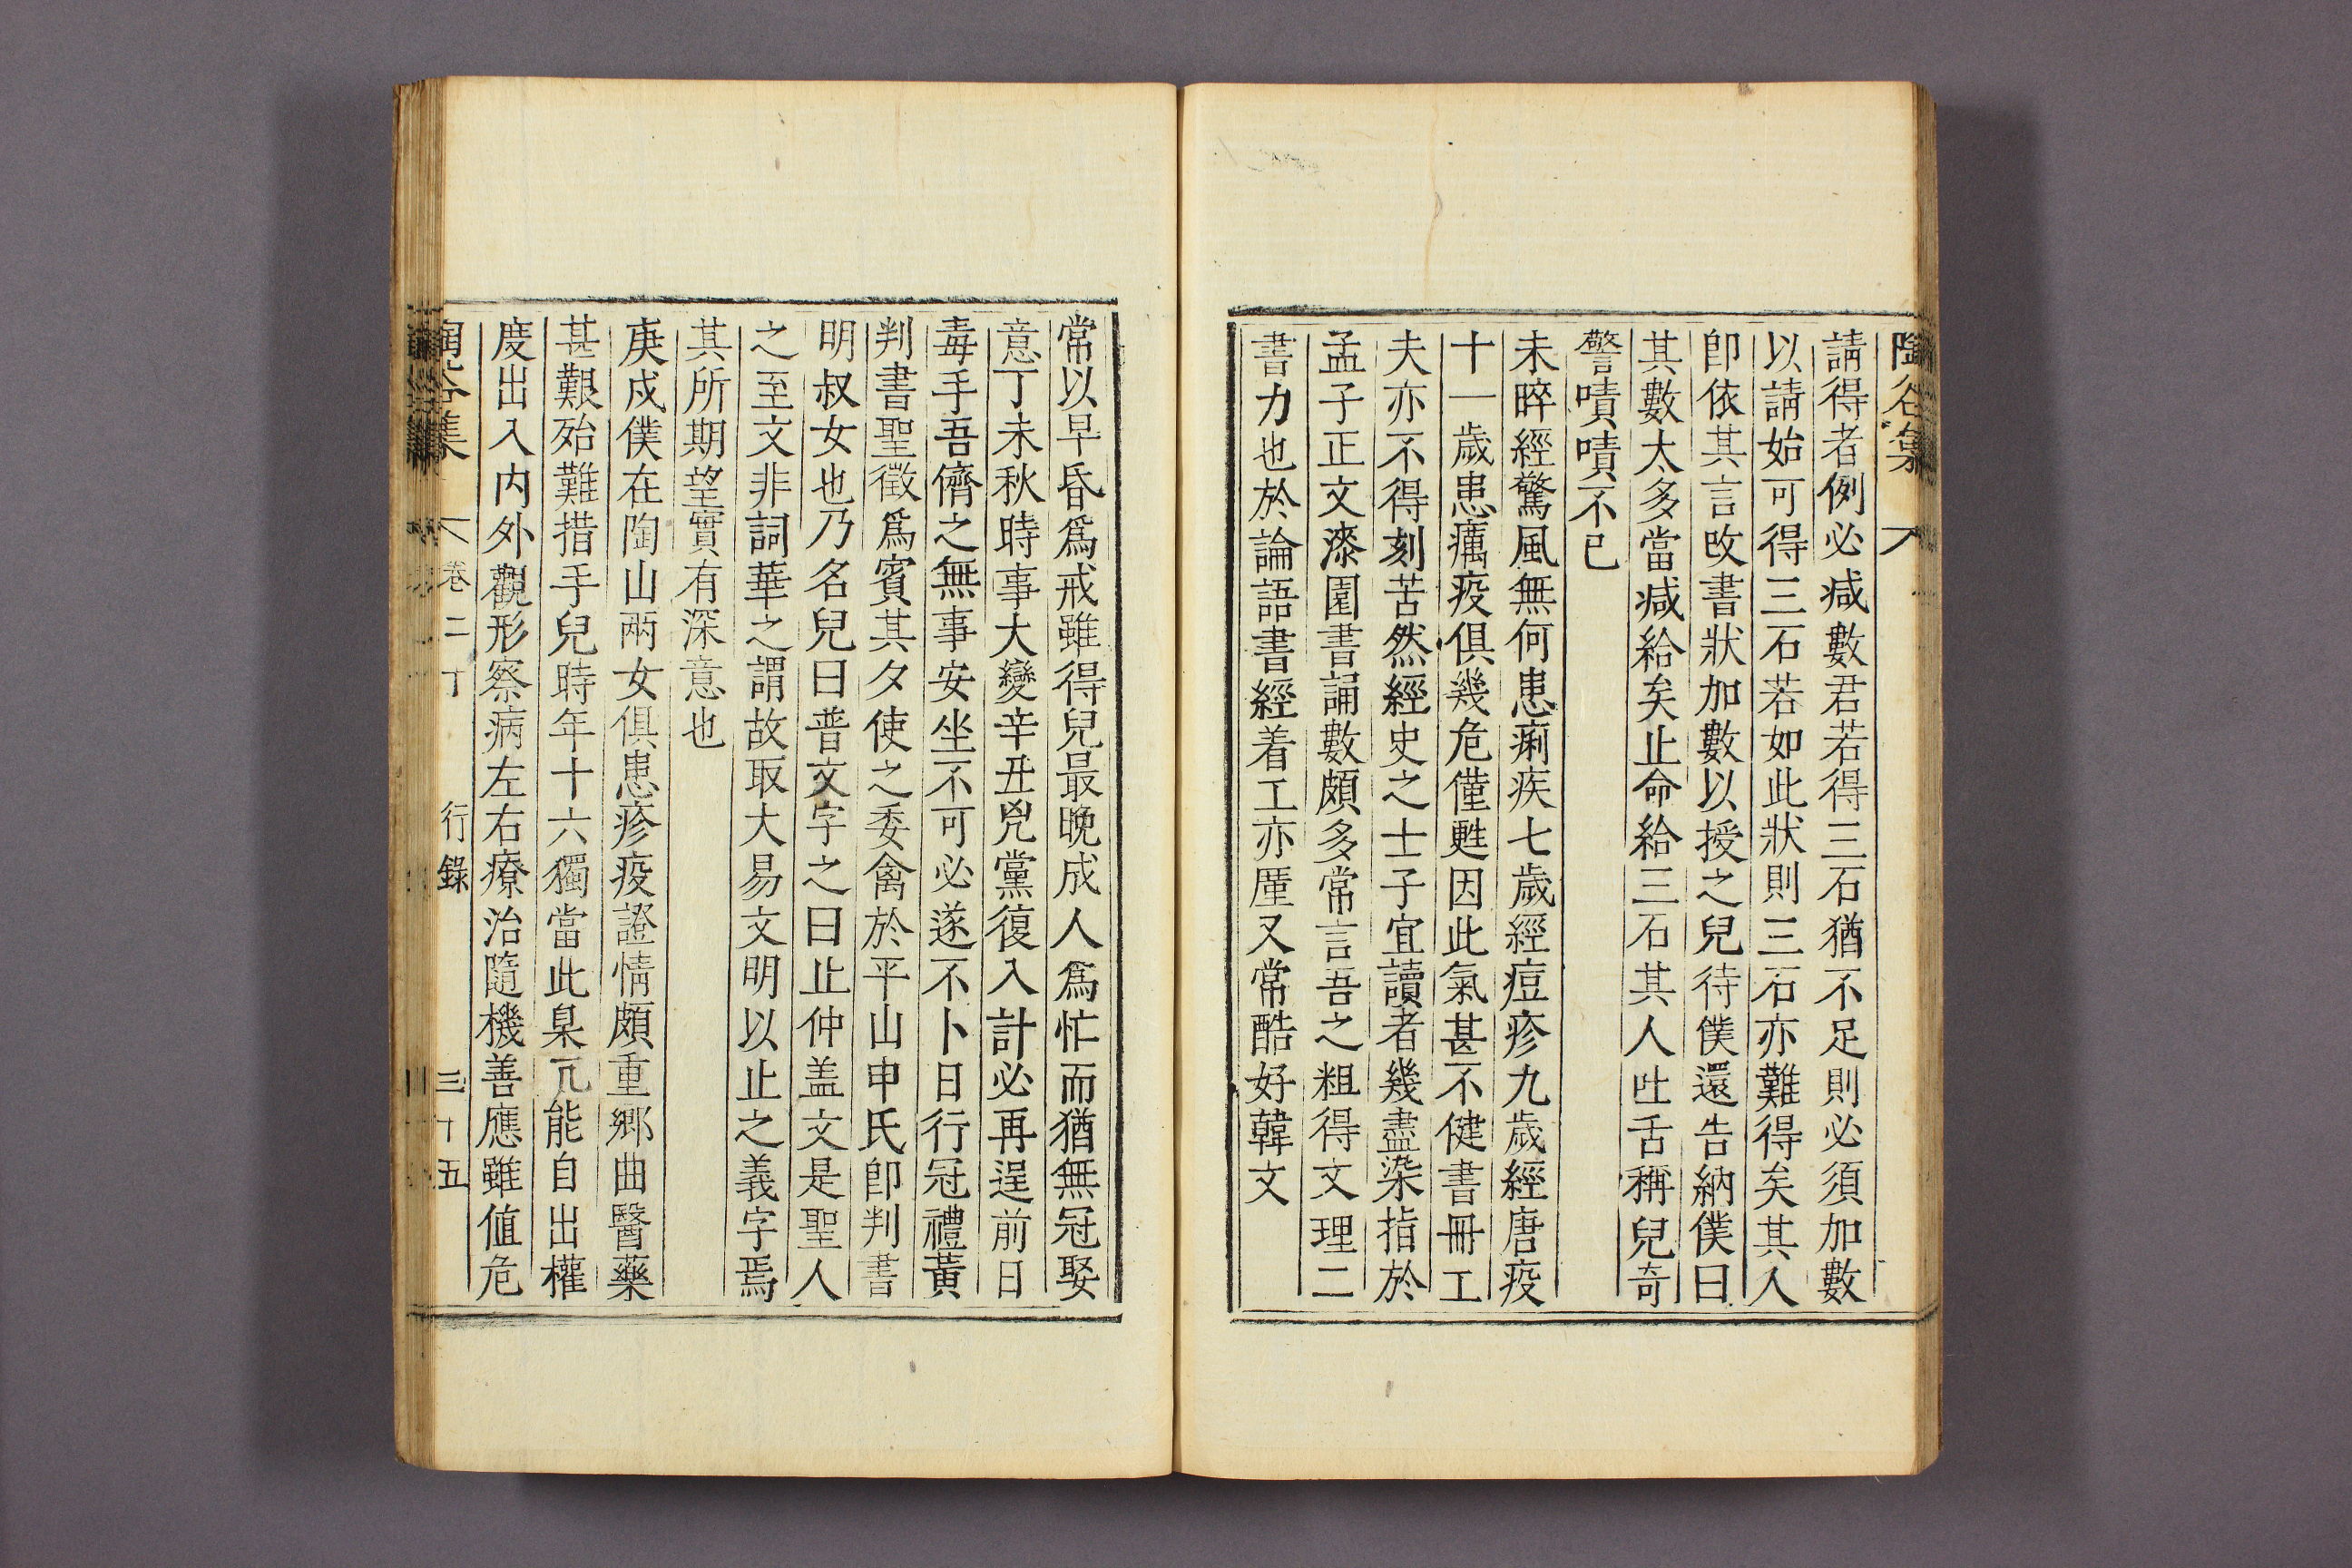 請得者例必减數君若得三石猶不足則必須加數
以請始可得三石若如此狀則三石亦難得矣其人
卽依其言改書狀加數以授之兒待僕還告納僕曰
其數太多當减給矣止命給三石其人吐舌稱兒奇
警嘖嘖不已
未晬經驚風無何患痢疾七歲經痘疹九歲經唐疫
十一歲患癘疫俱幾危僅甦因此氣甚不健書冊工
夫亦不得刻苦然經史之士子宜讀者幾盡染指於
孟子正文漆園書誦數頗多常言吾之粗得文理二
書力也於論語書經着工亦厪又常酷好韓文
常以早昏爲戒雖得兒最晚成人爲忙而猶無冠娶
意丁未秋時事大變辛丑兇黨復入計必再逞前日
毒手吾儕之無事安坐不可必遂不卜日行冠禮黃
判書聖徵爲賓其夕使之委禽於平山申氏卽判書
明叔女也乃名兒曰普文字之曰止仲盖文是聖人
之至文非詞華之謂故取大易文明以止之義字焉
其所期望實有深意也
庚戌僕在陶山兩女俱患疹疫證情頗重鄕曲醫藥
甚艱殆難措手兒時年十六獨當此臬兀能自出權
度出入内外觀形察病左右療治隨機善應雖値危
陶谷集 卷二十 行錄 三十五